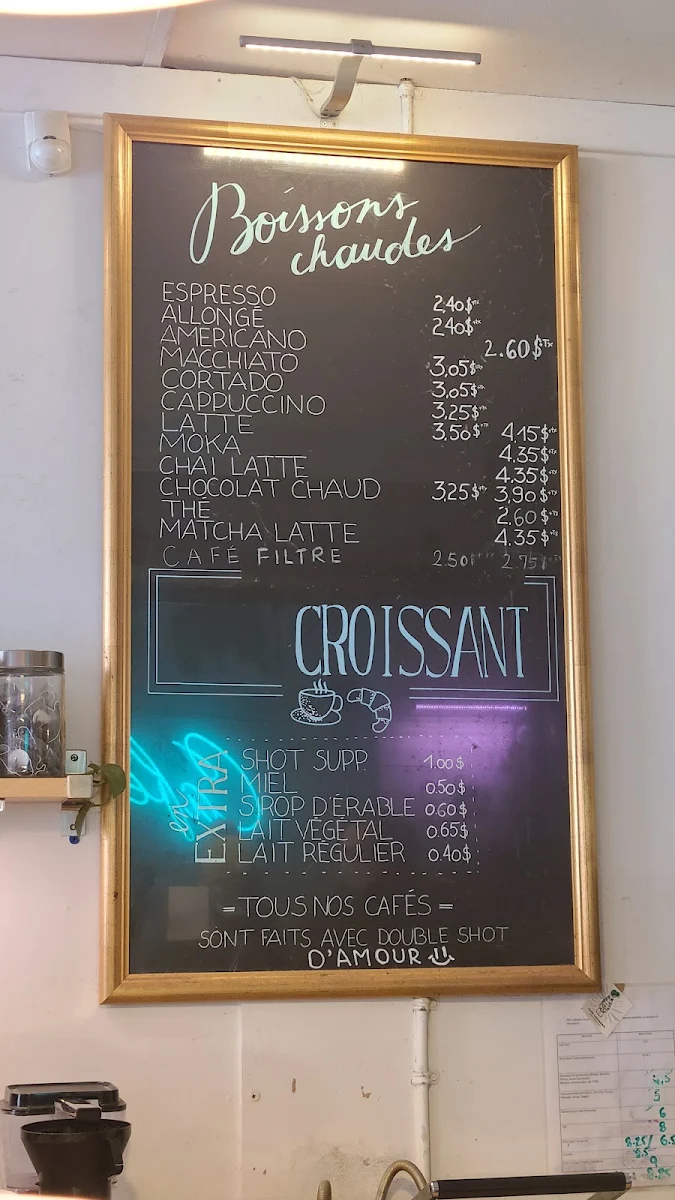 Boissons
chaudes
ESPRESSO 2.40$+tx
ALLONGÉ 2.40$+tx
AMERICANO 2.60$+Tx
MACCHIATO 3,05$+tx
CORTADO 3,05$+tx
CAPPUCCINO 3,25$+tx
LATTE 3.50$+tx 4,15$+tx
MOKA 4.35$+tx
CHAI LATTE 4.35$+tx
CHOCOLAT CHAUD 3,25$+tx 3,90$+tx
THÉ 2.60$+tx
MATCHA LATTE 4.35$+tx
CAFÉ FILTRE 2.50 2.75
CROISSANT
en EXTRA
SHOT SUPP. 1.00$
MIEL 0.50$
SIROP D'ÉRABLE 0.60$
LAIT VÉGÉTAL 0.65$
LAIT RÉGULIER 0.40$
=TOUS NOS CAFÉS=
SONT FAITS AVEC DOUBLE SHOT
D'AMOUR
5
6
8
8.25/ 6.5
9.5
9